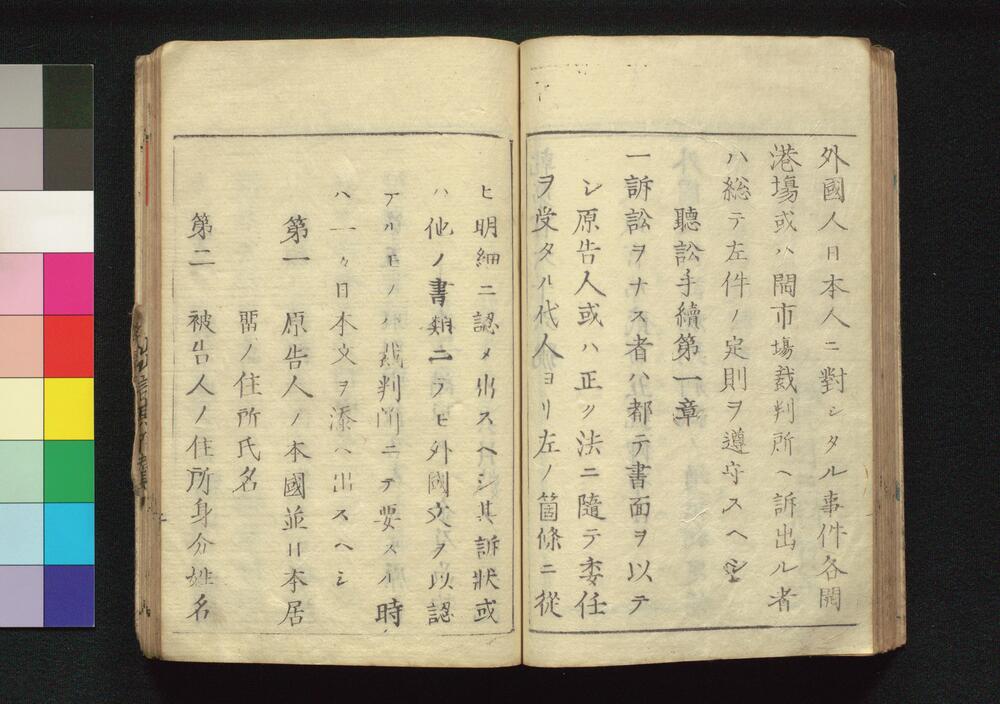 外國人日本人ニ對シタル事件各開
港塲或ハ開市塲裁判所ヘ訴出ル者
ハ総テ左件ノ定則ヲ遵守スヘシ
聽訟手續第一章
一訴訟ヲナス者ハ都テ書面ヲ以テ
シ原告人或ハ正ク法ニ隨テ委任
ヲ受タル代人ヨリ左ノ箇條ニ從
ヒ明細ニ認メ出スヘシ其訴狀或
ハ他ノ書類ニテモ外國文ヲ以認
アルモノハ裁判所ニテ要スル時
ハ一々日本文ヲ添ヘ出スヘシ
第一 原告人ノ本國並日本居
畱ノ住所氏名
第二 被告人ノ住所身分姓名